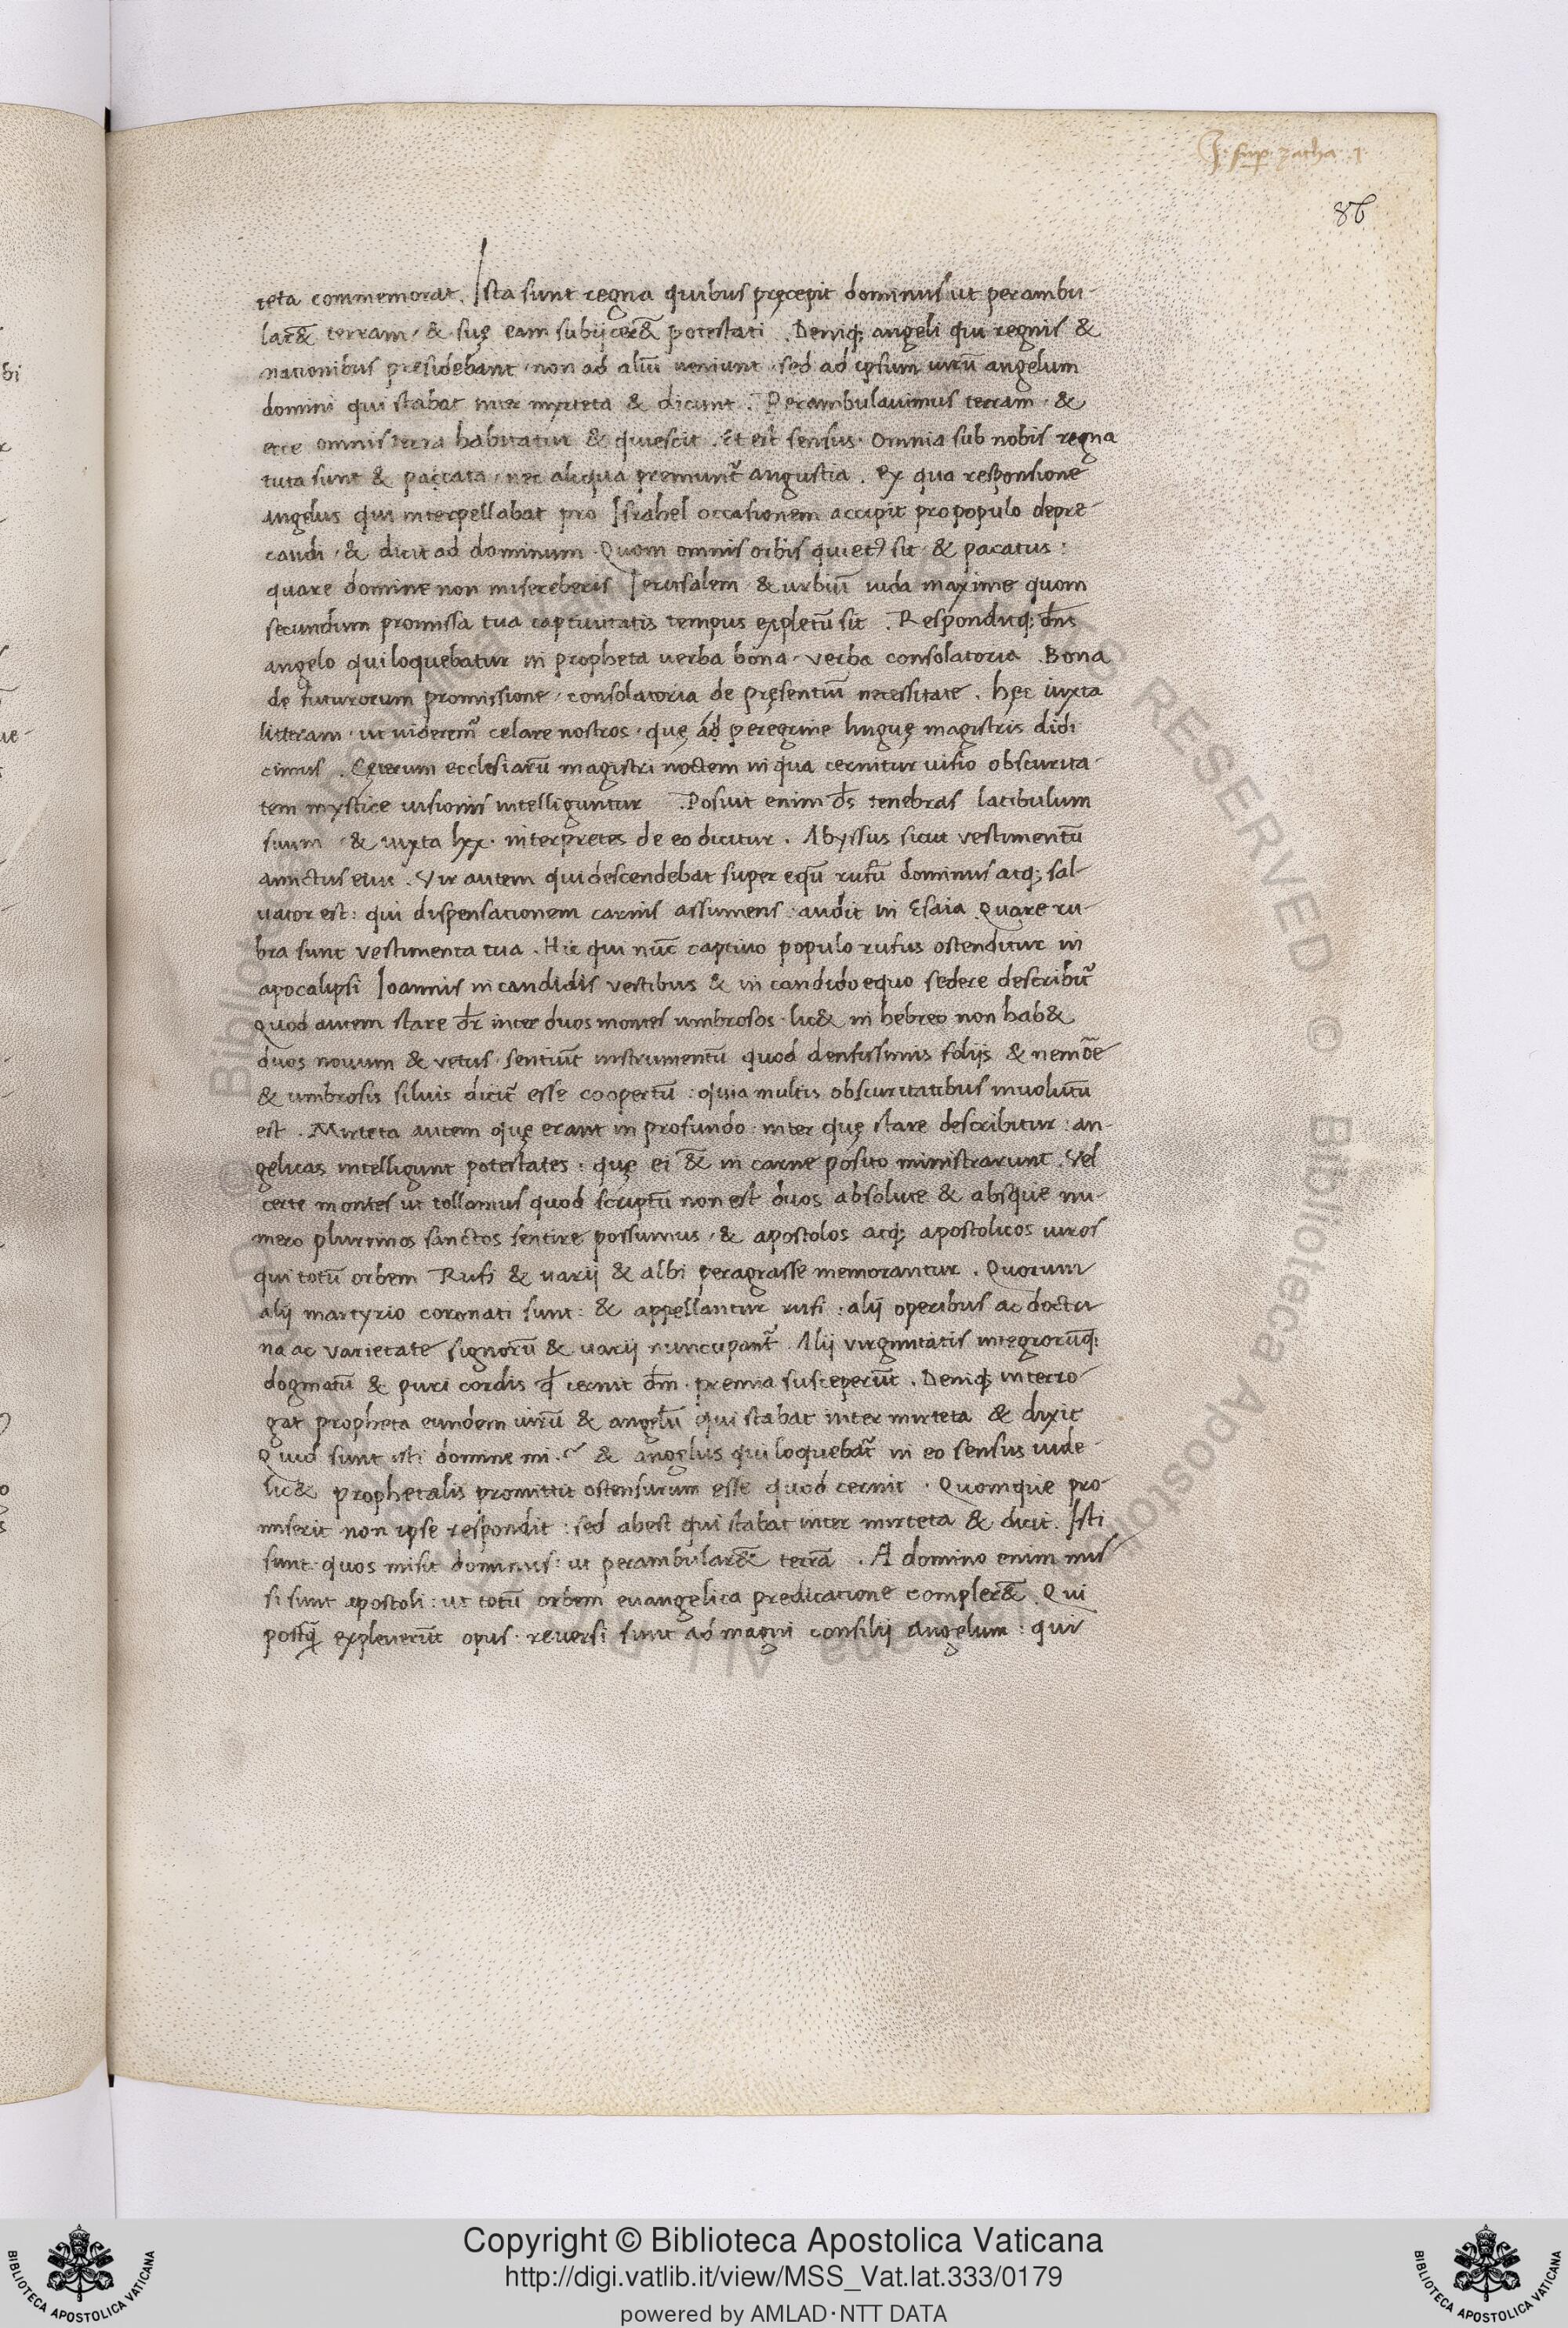 I. sup. zacha .1.
86
teta commemorat. Ista sunt regna quibus pręcepit dominus ut perambu-
lar&̄ terram · & suę eam subijcer&̄ potestati . Deniq; angeli qui regnis &
nationibus presidebant · non ad aliū ueniunt · sed ad ipsum uirū angelum
domini qui stabat inter myrteta & dicunt . Perambulauimus terram · &
ecce omnis terra habitatur & quiescit . Et est sensus · Omnia sub nobis regna
tuta sunt & paccata · nec aliqua premunt᷑ angustia . Ex qua responsione
angelus qui interpellabat pro Israhel occasionem accipit pro populo depre-
candi · & dicit ad dominum · Quom omnis orbis quietꝰ sit & pacatus :
quare domine non misereberis Ierusalem & urbiū iuda maxime quom
secundum promissa tua captiuitatis tempus expletū sit . Responditq; dn̄s
angelo qui loquebatur in propheta uerba bona · verba consolatoria . Bona
de futurorum promissione · consolatoria de pręsentiū necessitate . hęc iuxta
litteram · ut uiderem᷑ celare nostros · quę ad peregrine linguę magistris didi
cimus . Cęterum ecclesiarū magistri noctem in qua cernitur uisio obscurita-
tem mystice uisionis intelliguntur . Posuit enim d̄s tenebras latibulum
suum · & iuxta lxx · interpretes de eo dicitur . Abyssus sicut vestimentū
amictus eius . Vir autem qui descendebat super equū rufū dominus atq; sal-
uator est : qui dispensationem carnis assumens : audit in Esaia Quare ru-
bra sunt vestimenta tua . Hic qui nūc captiuo populo rufus ostenditur in
apocalipsi Ioannis in candidis vestibus & in candido equo sedere describit᷑
Quod autem stare dr̄ inter duos montes umbrosos · lic& in hebreo non hab&
duos nouum & vetus · sentiūt instrumentū quod densissimis folijs & nemōe
& umbrosis siluis dicit᷑ esse coopertū : quia multis obscuritatibus inuolutū
est . Mirteta autem quę erant in profundo · inter quę stare describitur : an-
gelicas intelligunt potestates : quę ei & in carne posito ministrarunt . Vel
certe montes ut tollamus quod scriptū non est duos absolute & absque nu-
mero plurimos sanctos sentire possumus · & apostolos atq; apostolicos uiros
qui totū orbem Rufi & uarij & albi peragrasse memorantur . Quorum
alij martyrio coronati sunt : & appellantur rufi : alij operibus ac doctri
na ac varietate signorū & uarij nuncupant᷑ Alij virginitatis integrorūq;
dogmatū & puri cordis q̄ cernit dm̄ · premia susceperūt . Deniq; interro-
gat propheta eundem uirū & angelū qui stabat inter mirteta & dixit
Quid sunt isti domine mi .? & angelus qui loquebat᷑ in eo sensus uide-
lic& prophetalis promittit ostensurum esse quod cernit · Quomque pro-
miserit non ipse respondit : sed abest qui stabat inter mirteta & dicit . Isti
sunt quos misit dominus : ut perambular&̄ terrā . A domino enim mis
si sunt apostoli : ut totū orbem euangelica predicatione compler&̄ . Qui
postq̄ expleuerūt opus · reuersi sunt ad magni consilij Angelum : qui
Copyright © Biblioteca Apostolica Vaticana
http://digi.vatlib.it/view/MSS_Vat.lat.333/0179
powered by AMLAD·NTT DATA